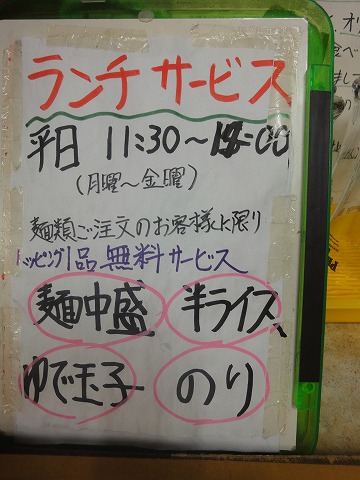 ランチサービス
平日 11:30～15:00
(月曜～金曜)
麺類ご注文のお客様に限り
トッピング1品無料サービス
麺中盛 半ライス
ゆで玉子 のり
オリ
食べ
まし